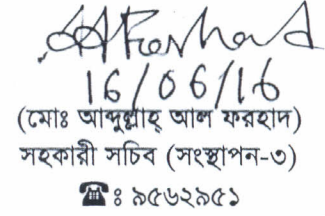 16/06/16
(মোঃ আব্দুল্লাহ্ আল ফরহাদ)
সহকারী সচিব (সংস্থাপন-৩)
☎ঃ ৯৫৬২৯৫১